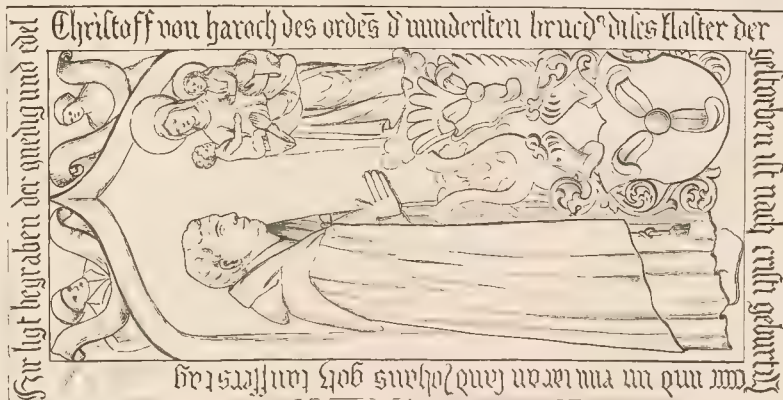 Hir ligt begraben der gnedig und edel
Christoff von haroch des ordēs d' mindersten brued' dises kloster der
gestorben ist nach cristi geburt
und im iar an sand Johanns gots tauffers tag